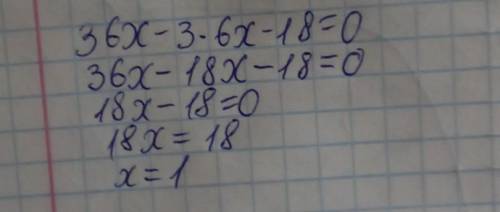 36x-3·6x-18=0
36x-18x-18=0
18x-18=0
18x=18
x=1